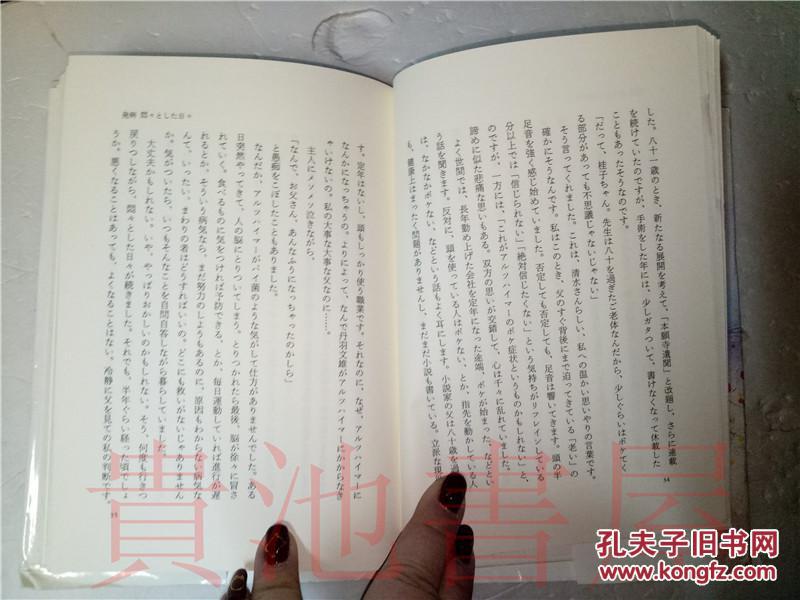 した。八十一歳のとき、新たなる展開を考えて、「本願寺遺聞」と改題し、さらに連載
を続けていたのですが、手術をした年には、少しガタついて、書けなくなって休載した
こともあったそうなのです。
「だって、桂子ちゃん。先生は八十を過ぎたご老体なんだから、少しぐらいはボケてく
る部分があっても不思議じゃないじゃない」
そう言ってくれました。これは、清水さんらしい、私への温かい思いやりの言葉です。
確かにそうなんです。私はこのとき、父のすぐ背後にまで迫ってきている「老い」の
足音を強く感じ始めていました。否定しても否定しても、足音は響いてきます。頭の半
分以上では「信じられない」「絶対信じたくない」という気持ちがリフレインしている
のですが、一方には、「これがアルツハイマーのボケ症状というものかもしれない」と、
諦めに似た悲痛な思いもある。双方の思いが交錯して、心は千々に乱れていました。
よく世間では、長年勤め上げた会社を定年になった途端、ボケが始まった、などとい
う話を聞きます。反対に、頭を使っている人はボケない、とか、指先を動かしている人
は、なかなかボケない、などという話もよく耳にします。小説家の父は八十歳を過
も、健康上はまったく問題がありませんし、まだまだ小説も書いている。立派な現役
54
発病 悶々とした日々
す。定年はないし、頭もしっかり使う職業です。それなのに、なぜ、アルツハイマーに
なんかになっちゃうの。よりによって、なんで丹羽文雄がアルツハイマーにかからなき
ゃいけないの。私の大事な大事な父なのに……。
主人にメソメソ泣きながら、
「なんで、お父さん、あんなふうになっちゃったのかしら」
と愚痴をこぼしたこともありました。
なんだか、アルツハイマーがバイ菌のような気がして仕方がありませんでした。ある
日突然やってきて、人の脳にとりついてしまう。とりつかれたら最後、脳が徐々に冒さ
れていく。食べるものに気をつければ予防できる、とか、毎日運動していれば進行が遅
れるとか、そういう病気なら、まだ努力のしようもあるのに、原因もわからない病気な
んて、いったい、まわりの者はどうすればいいの。どこにも救いがないじゃありません
か。気がついたら、いつもそんなことを自問自答しながら暮らしていました。
大丈夫かもしれない。いや、やっぱりおかしいのかもしれない。そう、何度も行きつ
戻りつしながら、悶々とした日々が続きました。それでも、半年ぐらい経った頃でしょ
うか。悪くなることはあっても、よくなることはない。冷静に父を見ての私の判断です。
55
貴池書屋
孔夫子旧书网
www.kongfz.com